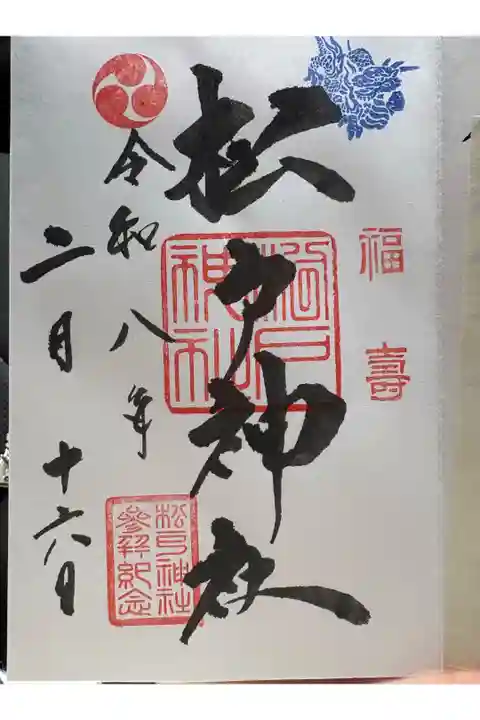 福壽
松戸神社
松戸神社
令和八年
二月十六日
松戸神社
參拜紀念